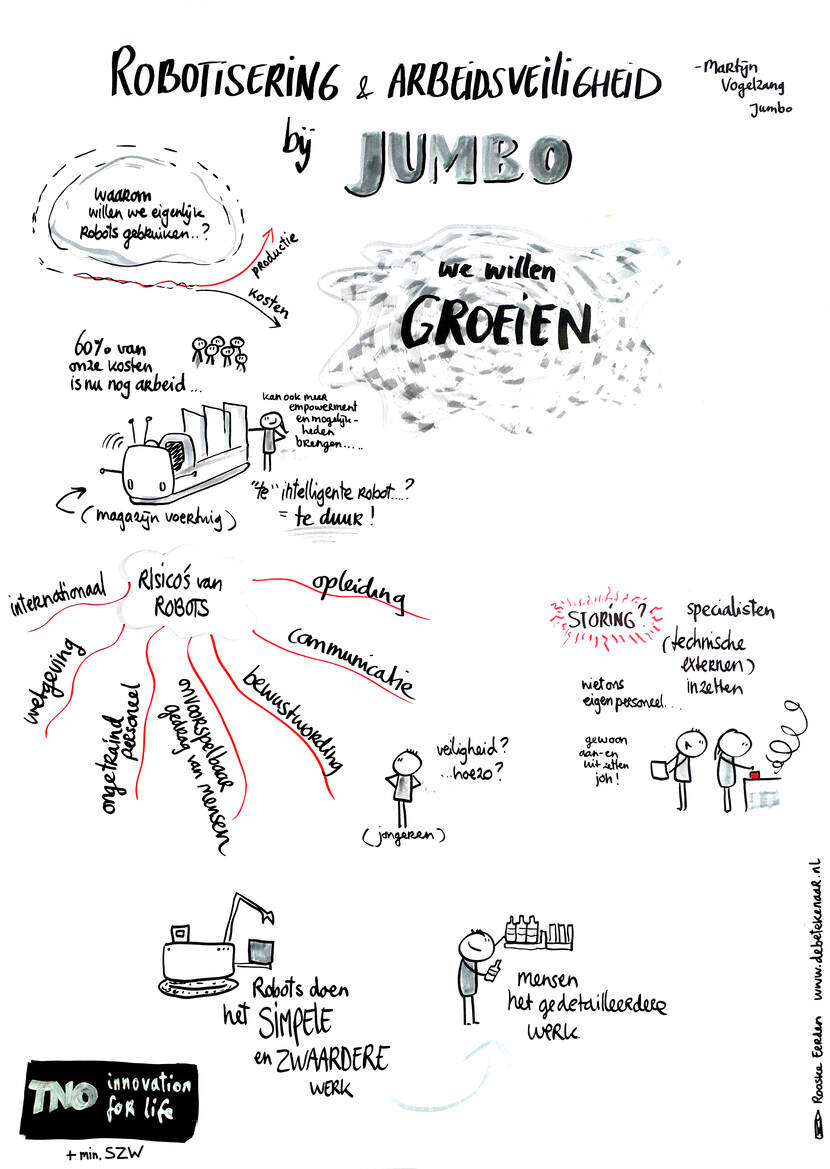 ROBOTISERING & ARBEIDSVEILIGHEID
bij JUMBO
- Martijn
Vogelzang
Jumbo
waarom
willen we eigenlijk
Robots gebruiken..?
productie
kosten
we willen
GROEIEN
60% van
onze kosten
is nu nog arbeid...
kan ook meer
empowerment
en mogelijk-
heden
brengen.....
(magazijn voertuig)
"te" intelligente robot....?
= te duur!
Risico's van
ROBOTS
internationaal
wetgeving
ongetraind
personeel
onvoorspelbaar
gedrag van mensen
bewustwording
communicatie
opleiding
veiligheid?
...hoezo?
(jongeren)
STORING?
specialisten
(technische
externen)
inzetten
niet ons
eigen personeel...
gewoon
aan- en
uit zetten
joh!
Robots doen
het SIMPELE
en ZWAARDERE
WERK
mensen
het gedetailleerdere
WERK
TNO innovation
for life
+ min. SZW
Rooske Eerden www.debetekenaar.nl